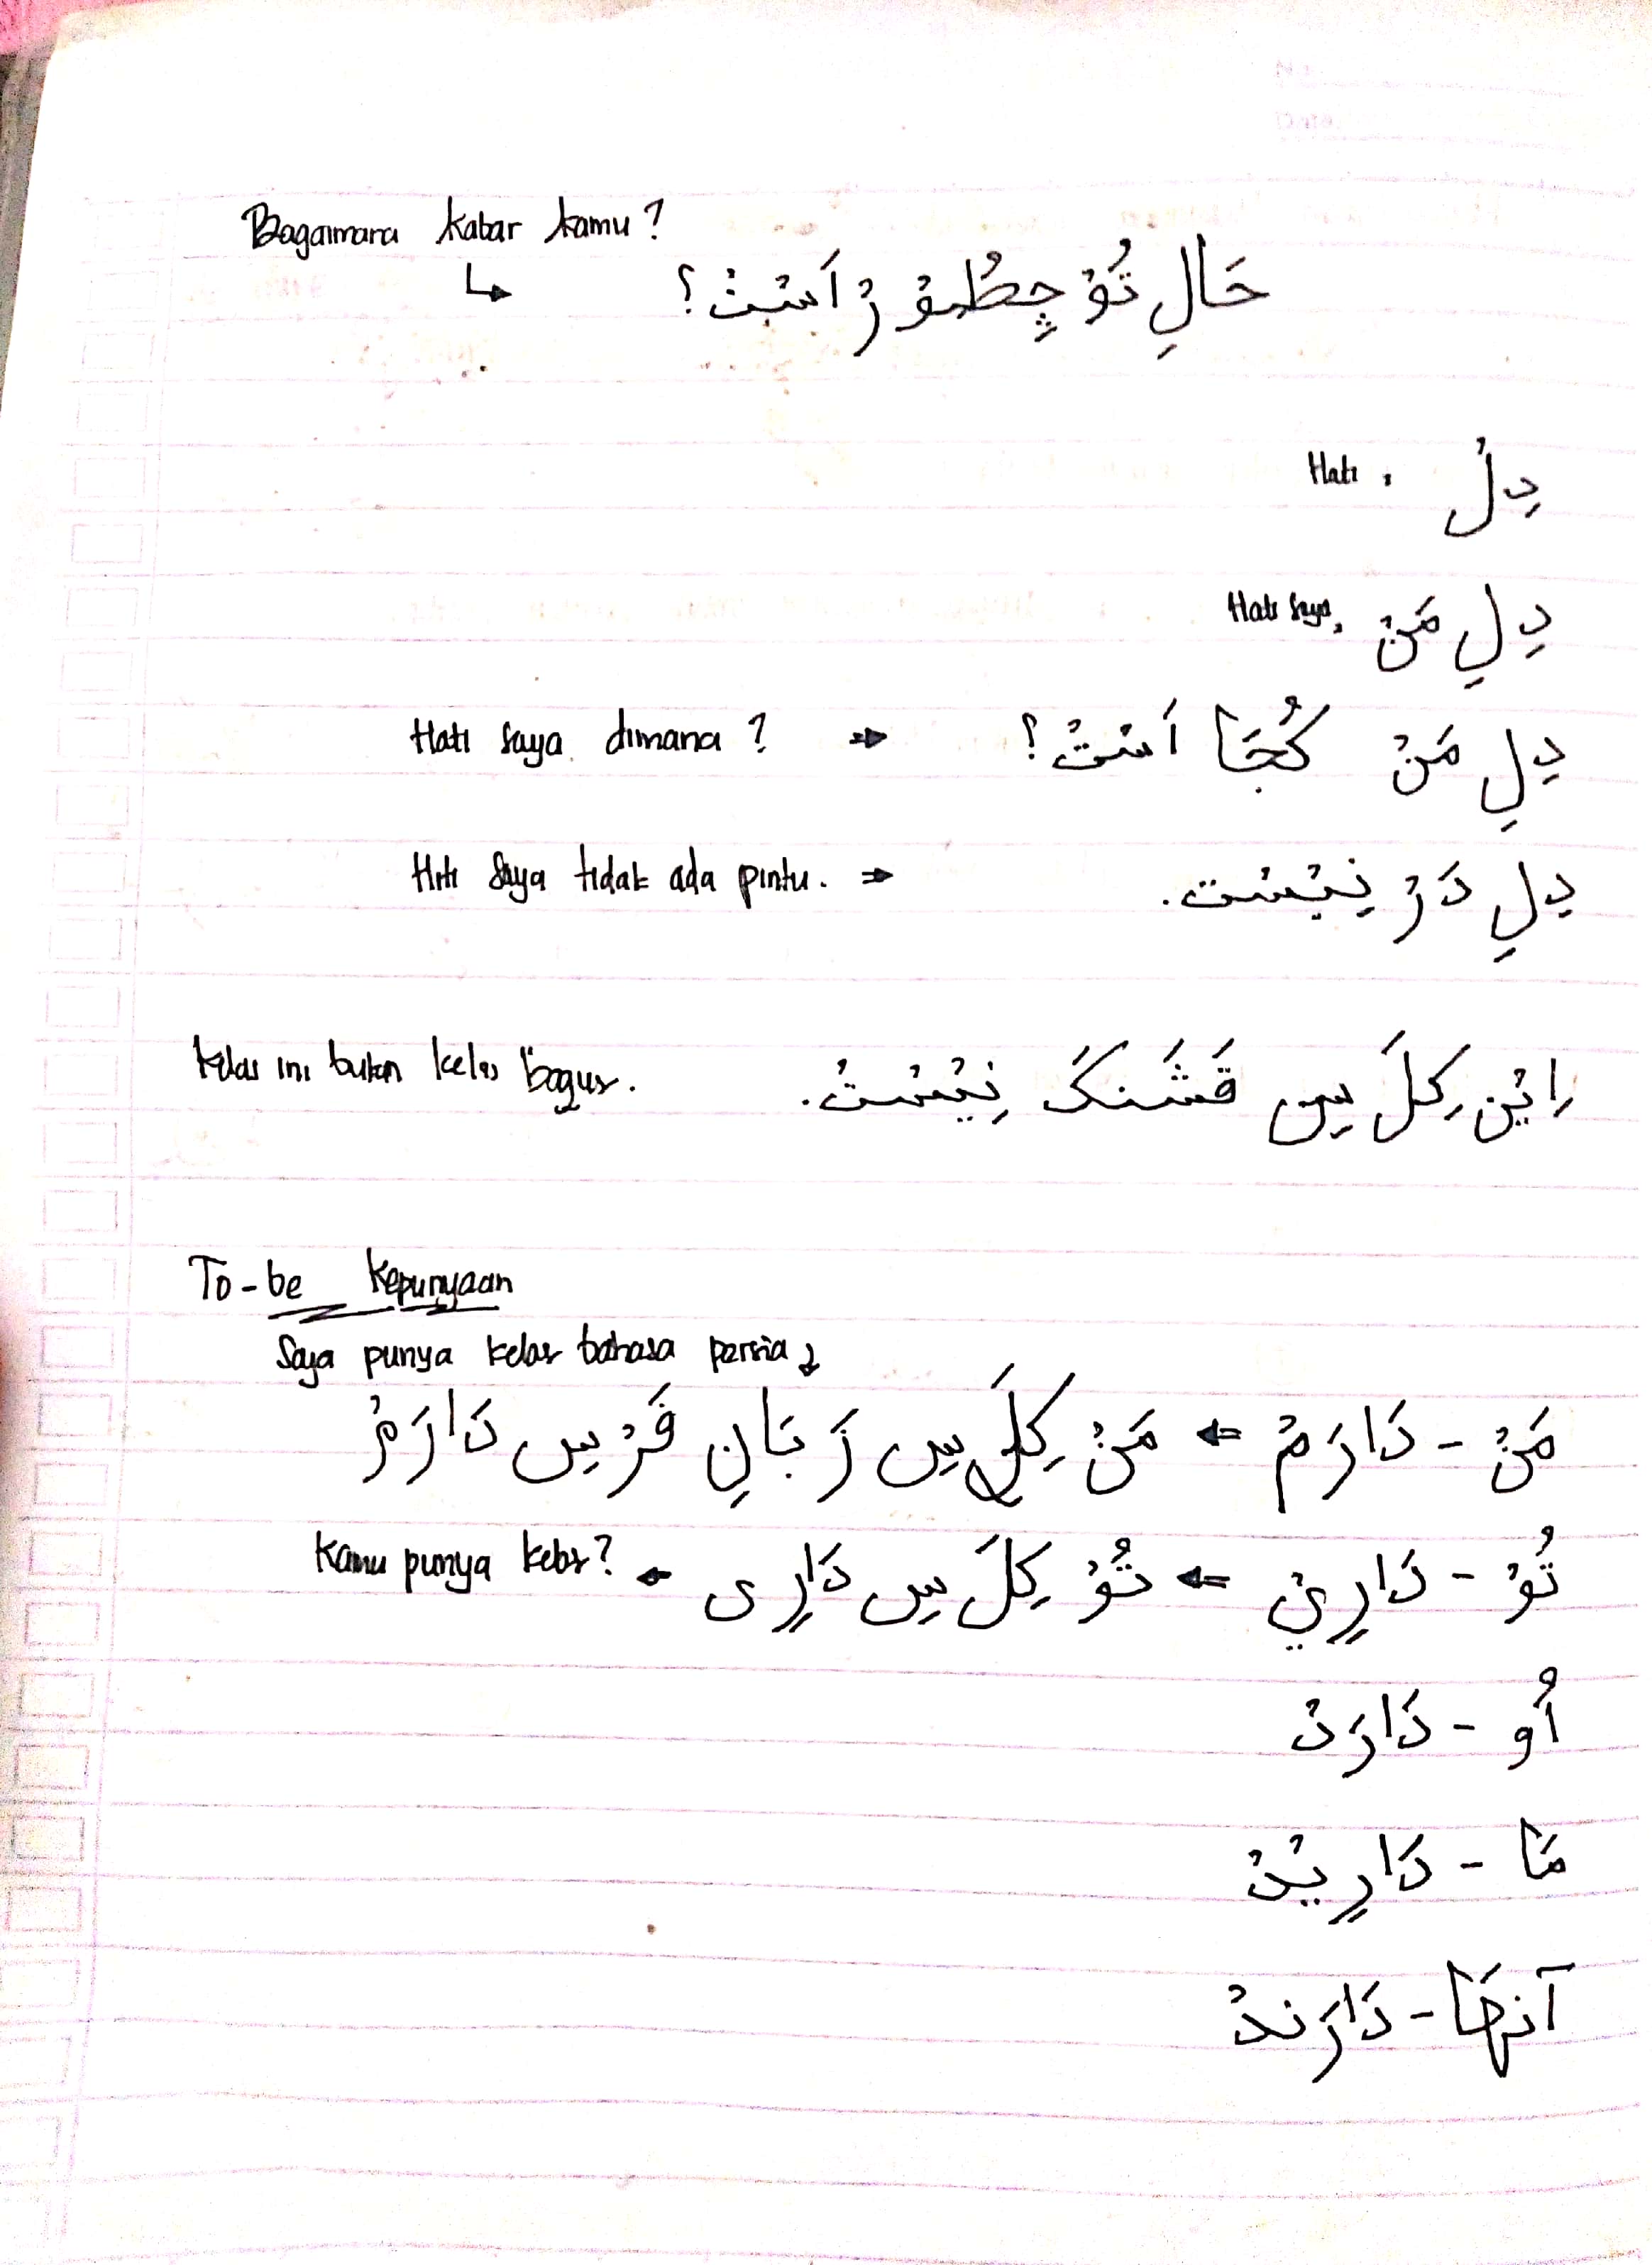 Bagaimana kabar kamu?
↳ حَالِ تُوْ چِطُوْرْ اَسْتْ؟
Hati, دِلْ
Hati saya, دِلِ مَنْ
Hati saya dimana? ⇒ دِلِ مَنْ كُجَا اَسْتْ؟
Hti saya tidak ada pintu. ⇒ دِلِ دَرْ نِيْسْت.
Kelas ini bukan kelas bagus. اِيْن كِلَسِ قَشَنكَ نِيْسْتْ.
To-be Kepunyaan
Saya punya kelas bahasa persia
مَنْ - دَارَمْ ⇐ مَنْ كِلَسِ زَبَانِ فَرْسِ دَارَمْ
تُوْ - دَارِيْ ⇐ تُوْ كِلَسِ دَارِى ← Kamu punya kelas?
اُو - دَارَدْ
مَا - دَارِيْمْ
آنهَا - دَارَندْ